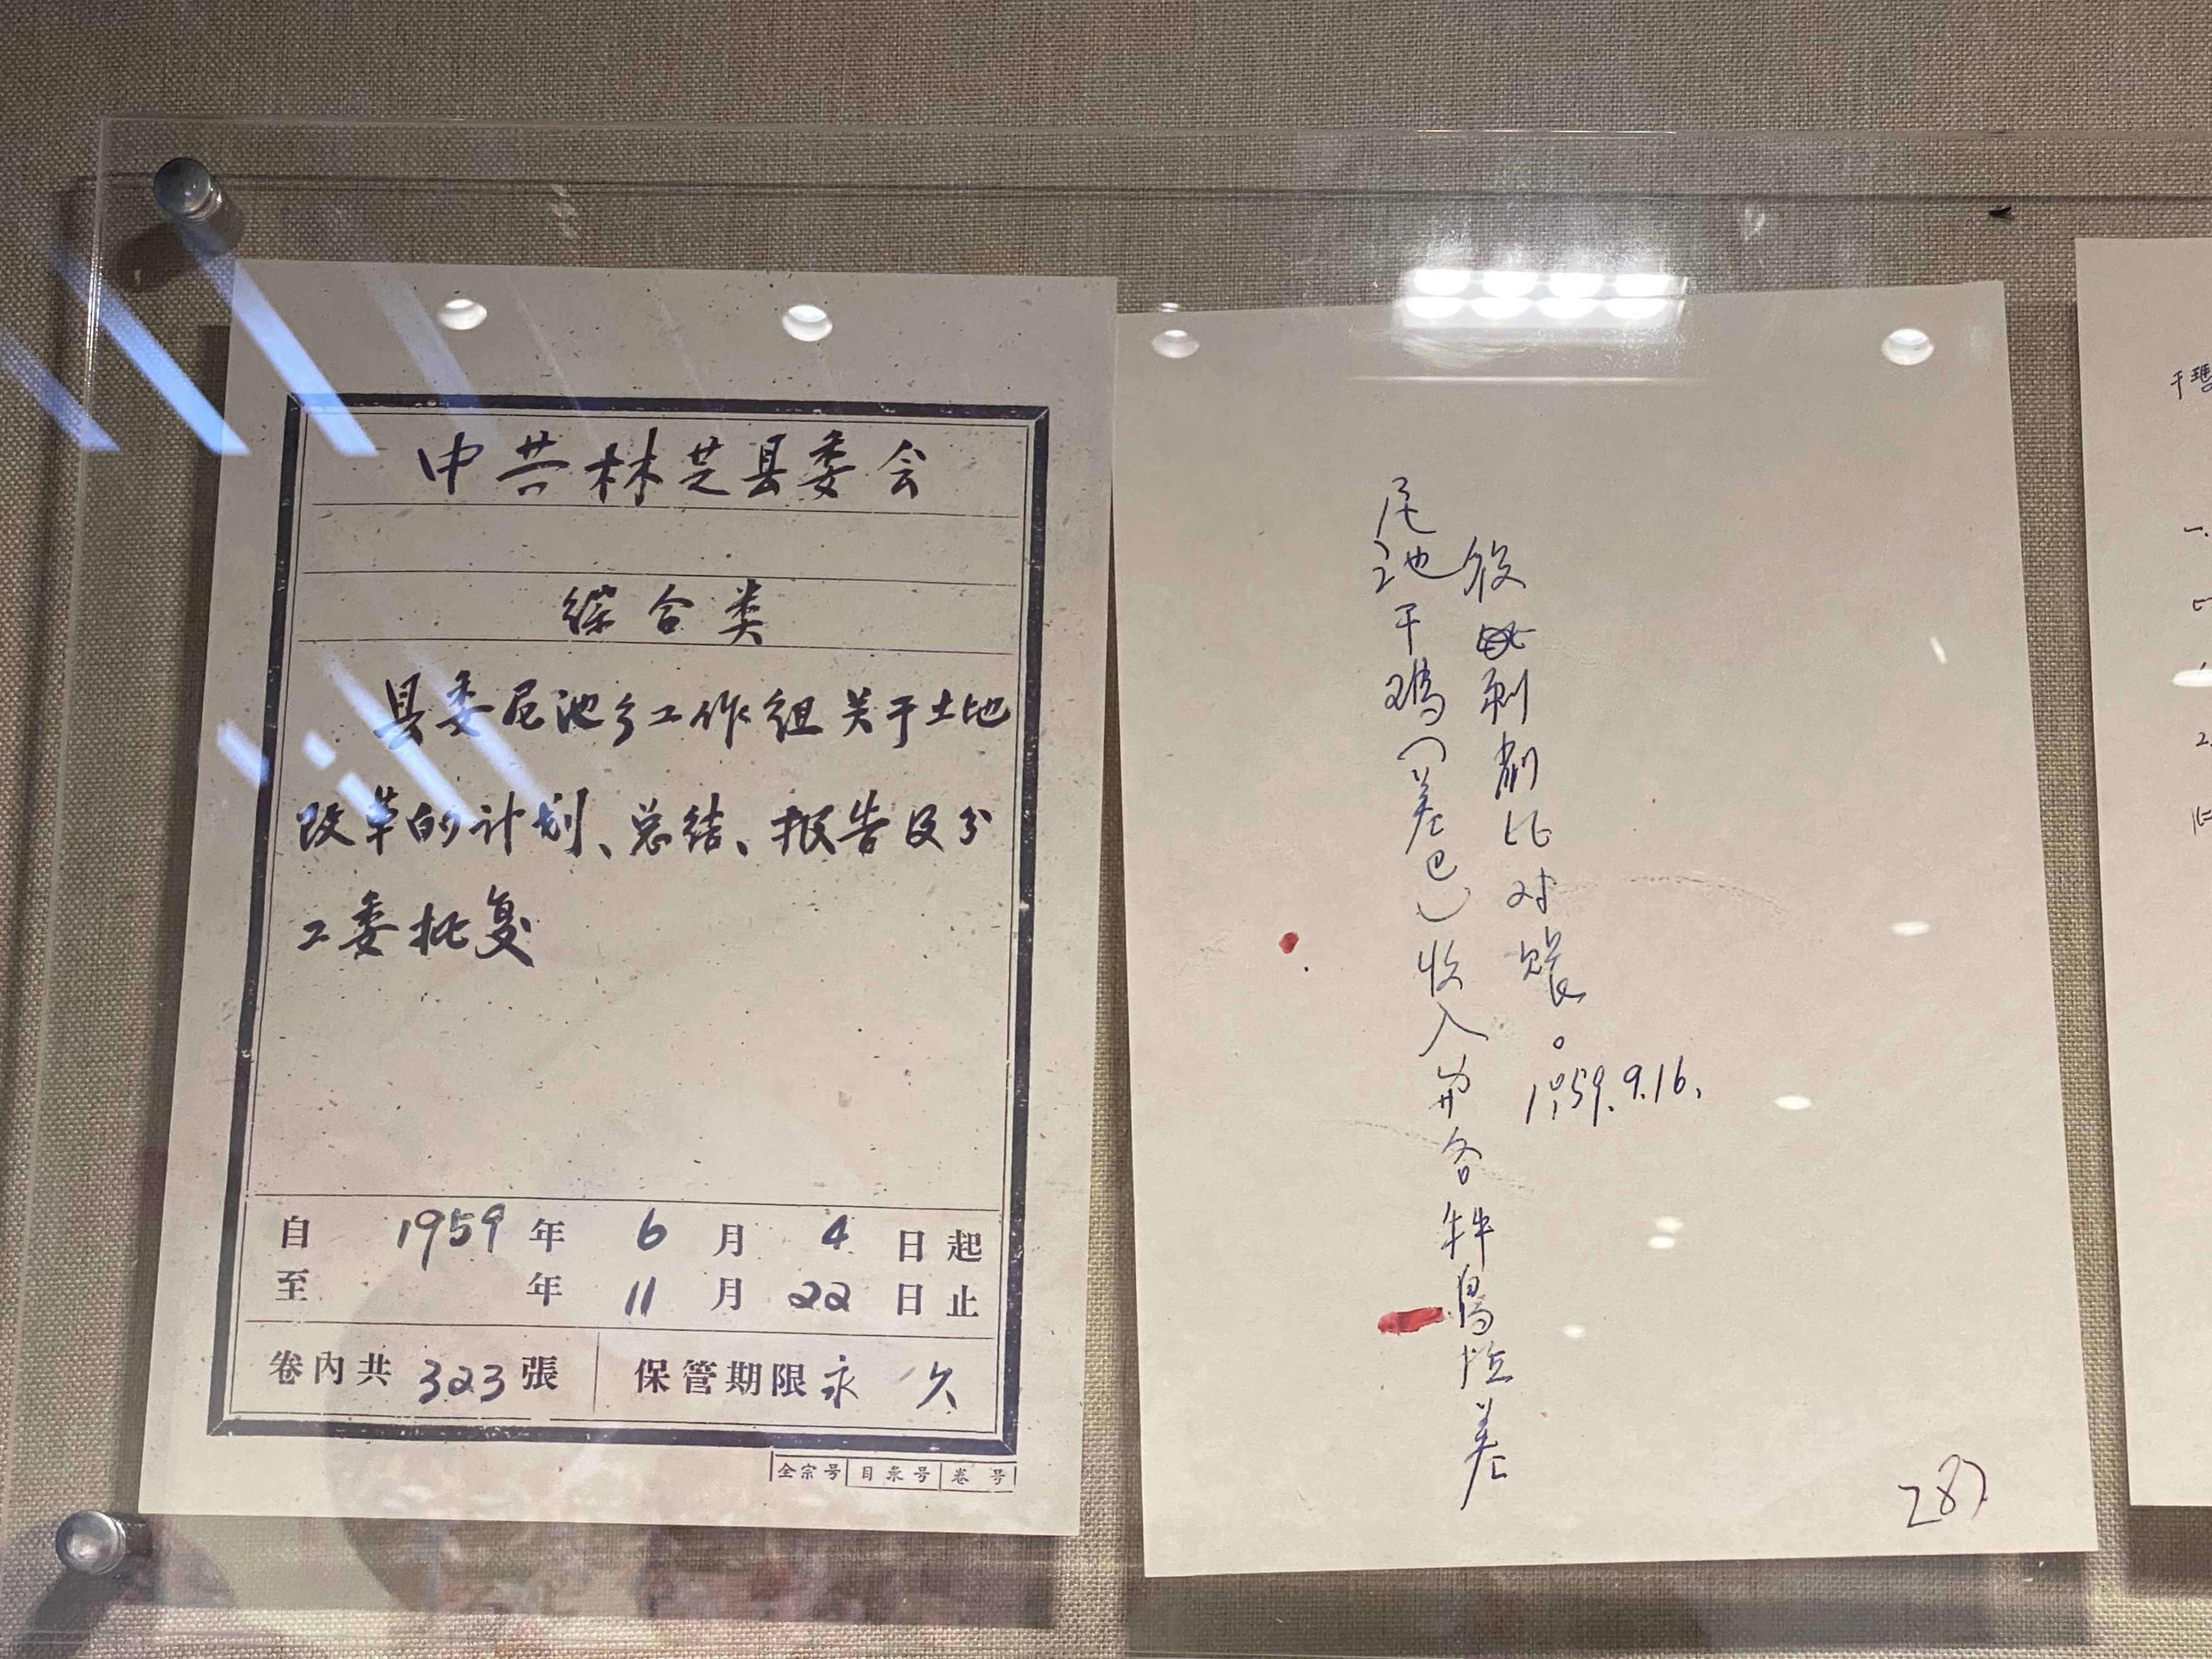 中共林芝县委会
综合类
县委尼池乡工作组关于土地
改革的计划、总结、报告及分
工委批复
自 1959 年 6 月 4 日起
至 年 11 月 22 日止
卷内共 323 張 保管期限 永久
全宗号 目录号 卷号
尼池干瑪（差巴）收入 各种烏拉差
役剥削比对賬。
1959.9.16.
287
干瑪
一.
2.